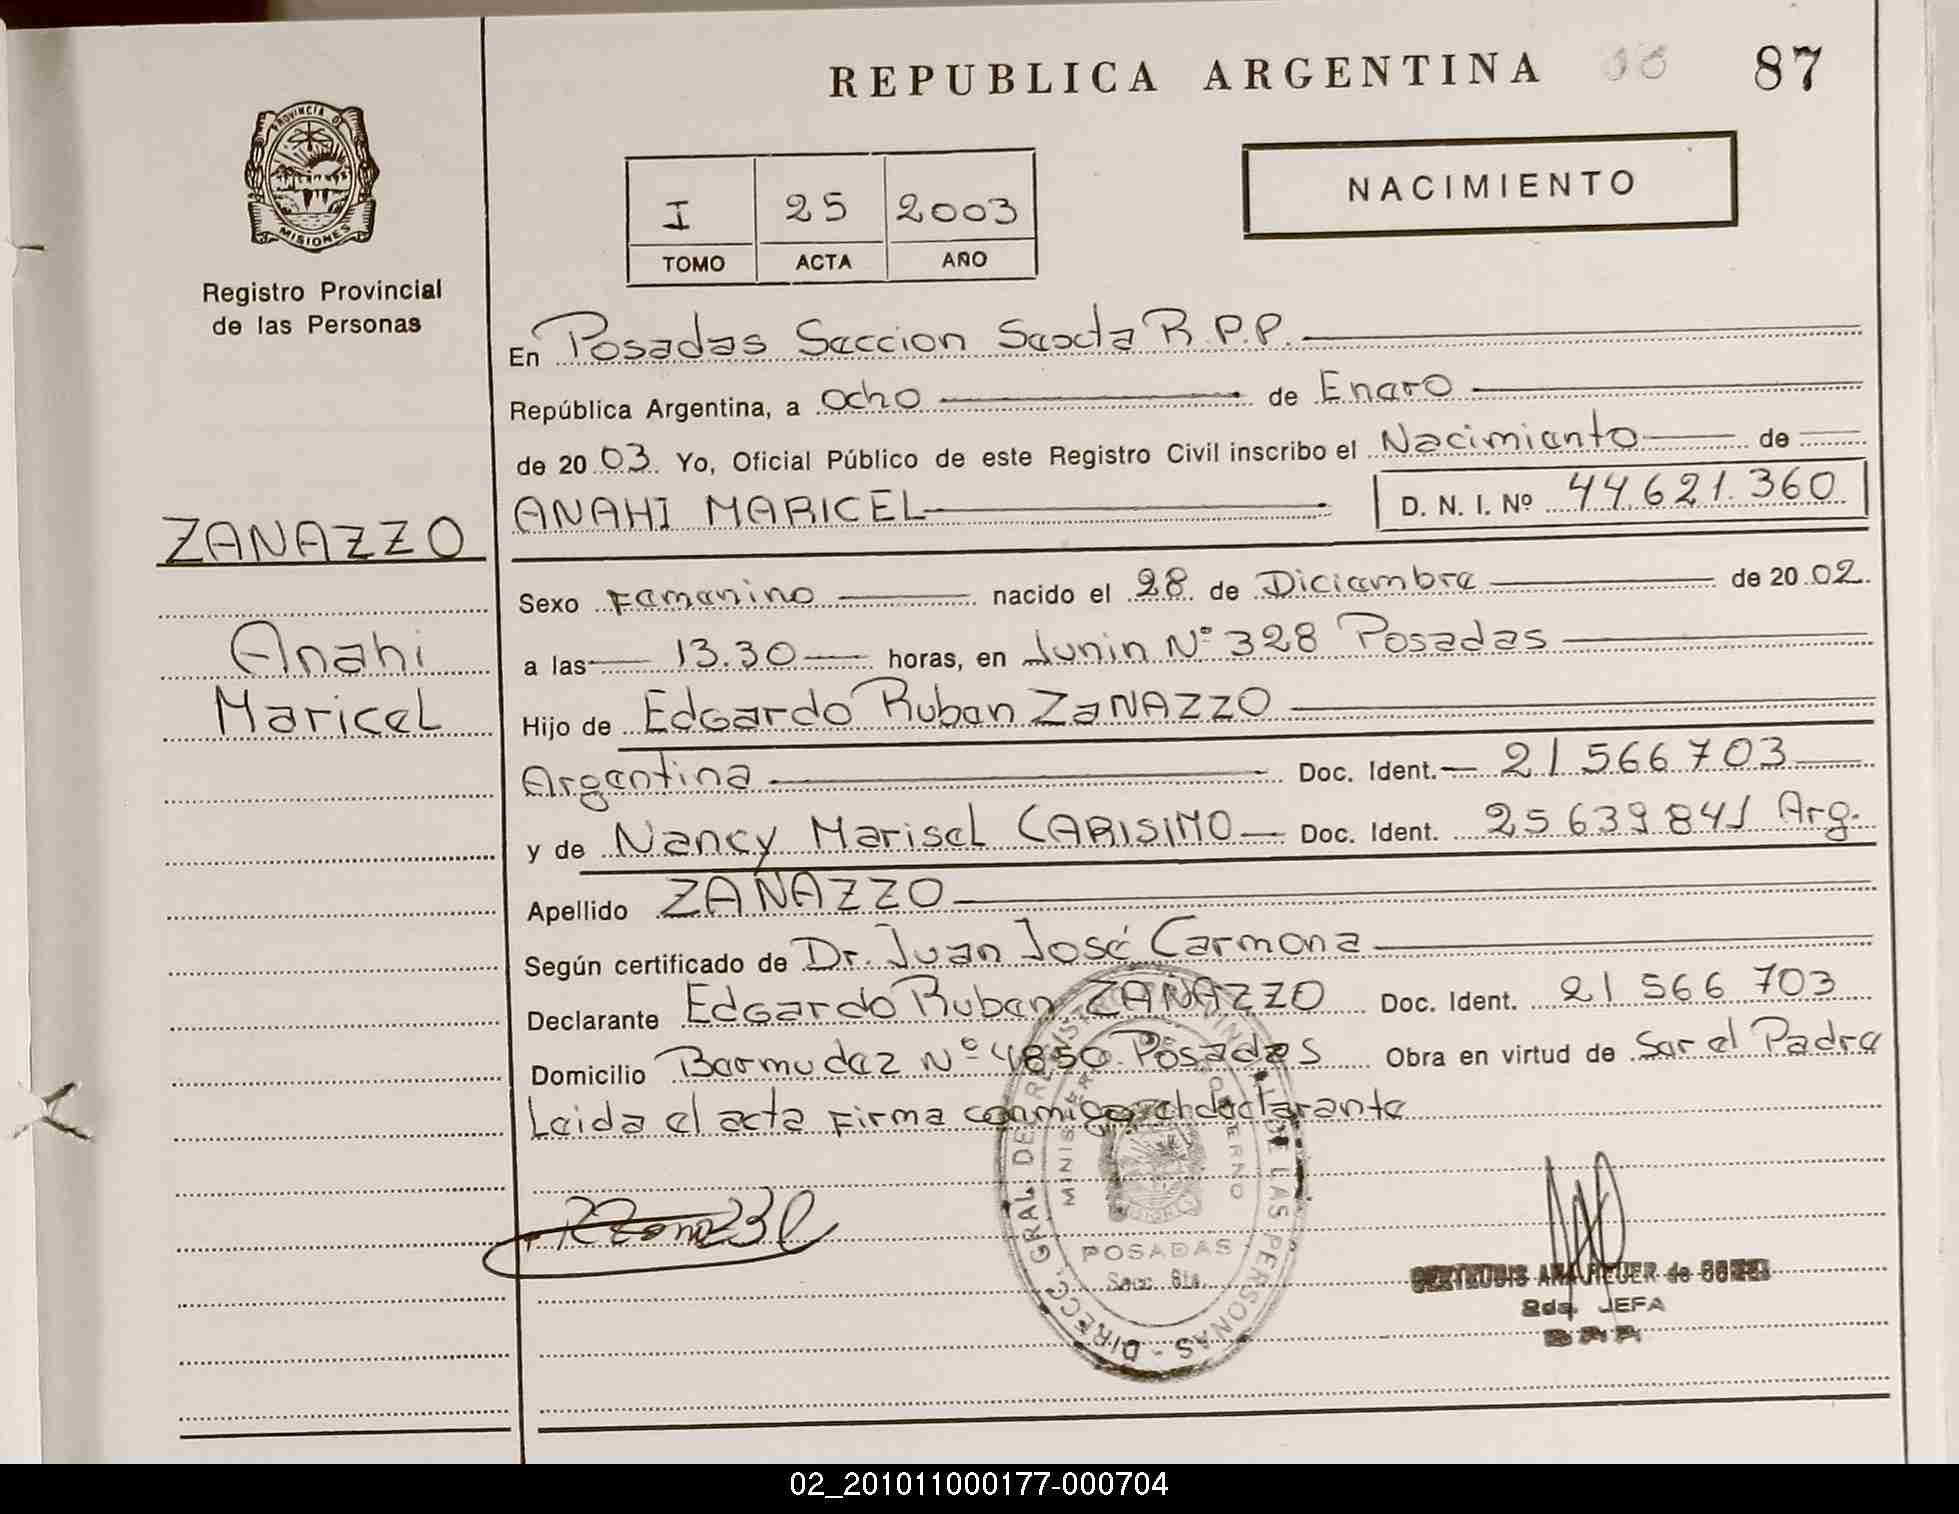 REPUBLICA ARGENTINA 87
PROVINCIA DE
MISIONES
Registro Provincial
de las Personas
I 25 2003
TOMO ACTA AÑO
NACIMIENTO
En Posadas Seccion Sexta R.P.P.
República Argentina, a ocho de Enero
de 2003. Yo, Oficial Público de este Registro Civil inscribo el Nacimiento de
ANAHI MARICEL D. N. I. Nº 44.621.360
ZANAZZO
Anahi
Maricel
Sexo Femenino nacido el 28 de Diciembre de 2002.
a las 13.30 horas, en Junin Nº 328 Posadas
Hijo de Edgardo Ruben ZANAZZO
Argentina Doc. Ident. 21 566 703
y de Nancy Marisel CARISIMO Doc. Ident. 25 639 841 Arg.
Apellido ZANAZZO
Según certificado de Dr. Juan José Carmona
Declarante Edgardo Ruben ZANAZZO Doc. Ident. 21 566 703
Domicilio Bermudez Nº 4850 Posadas Obra en virtud de Ser el Padre
Leida el acta firma conmigo el declarante
DIRECC. GRAL. DE REGISTRO PROVINCIAL DE LAS PERSONAS
MINISTERIO DE GOBIERNO
POSADAS
Secc. 6ta.
2da. JEFA
02_201011000177-000704